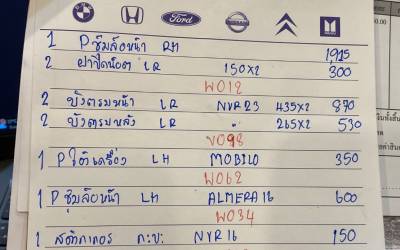 Ford NISSAN
1 P ซุ้มล้อหน้า RH 1,915
2 ฝาปิดน๊อต LR 150x2 300
W012
2 บังตรมหน้า LR NVR23 435x2 870
2 บังตรมหลัง LR " 265x2 530
V098
1 P ใต้เครื่อง LH MOBILO 350
W062
1 P ซุ้มล้อหน้า LH ALMERA16 600
W034
1 สติกเกอร์ กะบะ NYR16 150